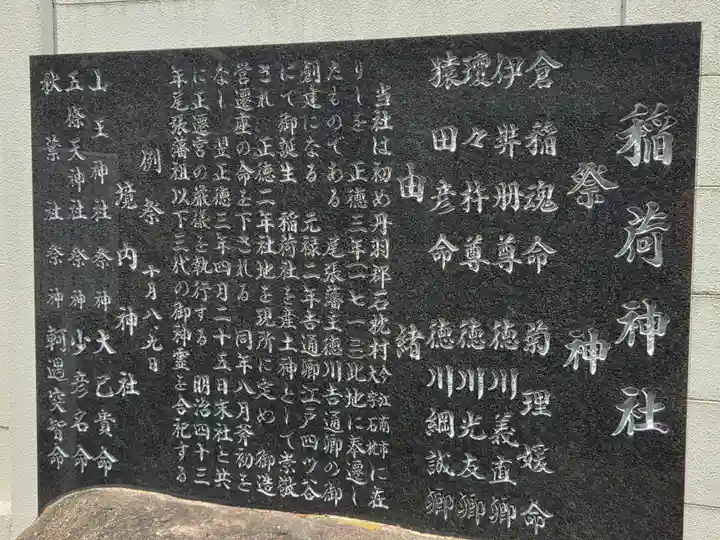 稲荷神社
祭神
倉稲魂命 菊理媛命
伊弉冊尊 徳川義直卿
瓊々杵尊 徳川光友卿
猿田彦命 徳川綱誠卿
由緒
当社は初め丹羽郡石枕村今江南市大字石枕に在
りしを 正徳三年(一七一三)此地に奉遷し
たものである 尾張藩主徳川吉通卿の御
創建になる 元禄二年吉通卿江戸四ツ谷
にて御誕生 稲荷社を産土神として崇敬
され 正徳二年社地を現所に定め 御造
営遷座の命を下される 同年八月斧初を
なし 翌正徳三年四月二十五日末社と共
に正遷宮の厳様を執行する 明治四十三
年尾張藩祖以下三代の御神霊を合祀する
例祭 十月八、九日
境内神社
山王神社祭神 大己貴命
五條天神社祭神 少彦名命
秋葉社祭神 軻遇突智命